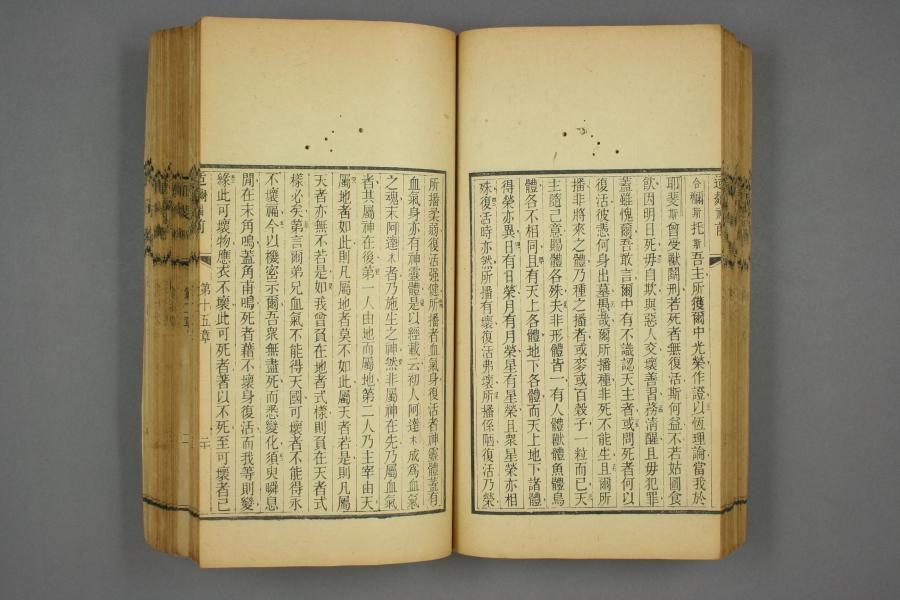 合爾斯托斯吾主所獲爾中光榮作證以恆理論當我於
耶斐斯曾受獸鬭刑若死者無復活斯何益不若姑圖食
飲因明日死毋自欺與惡人交壞善習務清醒且毋犯罪
蓋雖愧爾吾敢言爾中有不識認天主者或問死者何以
復活彼憑何身出墓愚哉爾所播種非死不能生且爾所
播非將來之體乃種之播者或麥或百穀子一粒而已天
主隨己意賜體各殊夫非形體皆一有人體獸體魚體鳥
體各不相同且有天上各體地下各體而天上地下諸體
得榮亦異日有日榮月有月榮星有星榮且衆星榮亦相
殊復活時亦然所播有壞復活弗壞所播係陋復活乃榮
所播柔弱復活强健所播者血氣身復活者神靈體蓋有
血氣身亦有神靈體是以經載云初人阿達木成爲血氣
之魂末阿達木者乃施生之神然非屬神在先乃屬血氣
者其屬神在後第一人由地而屬地第二人乃主宰由天
屬地者如此則凡屬地者莫不如此屬天者若是則凡屬
天者亦無不若是如我曾負在地者式樣則負在天者式
樣必矣弟言爾弟兄血氣不能得天國可壞者不能得永
不壞福今以機密示爾吾衆無盡死而悉變化須臾瞬息
閒在末角鳴蓋角甫鳴死者藉不壞身復活而我等則變
緣此可壞物應衣不壞此可死者著以不死至可壞者已
第十五章